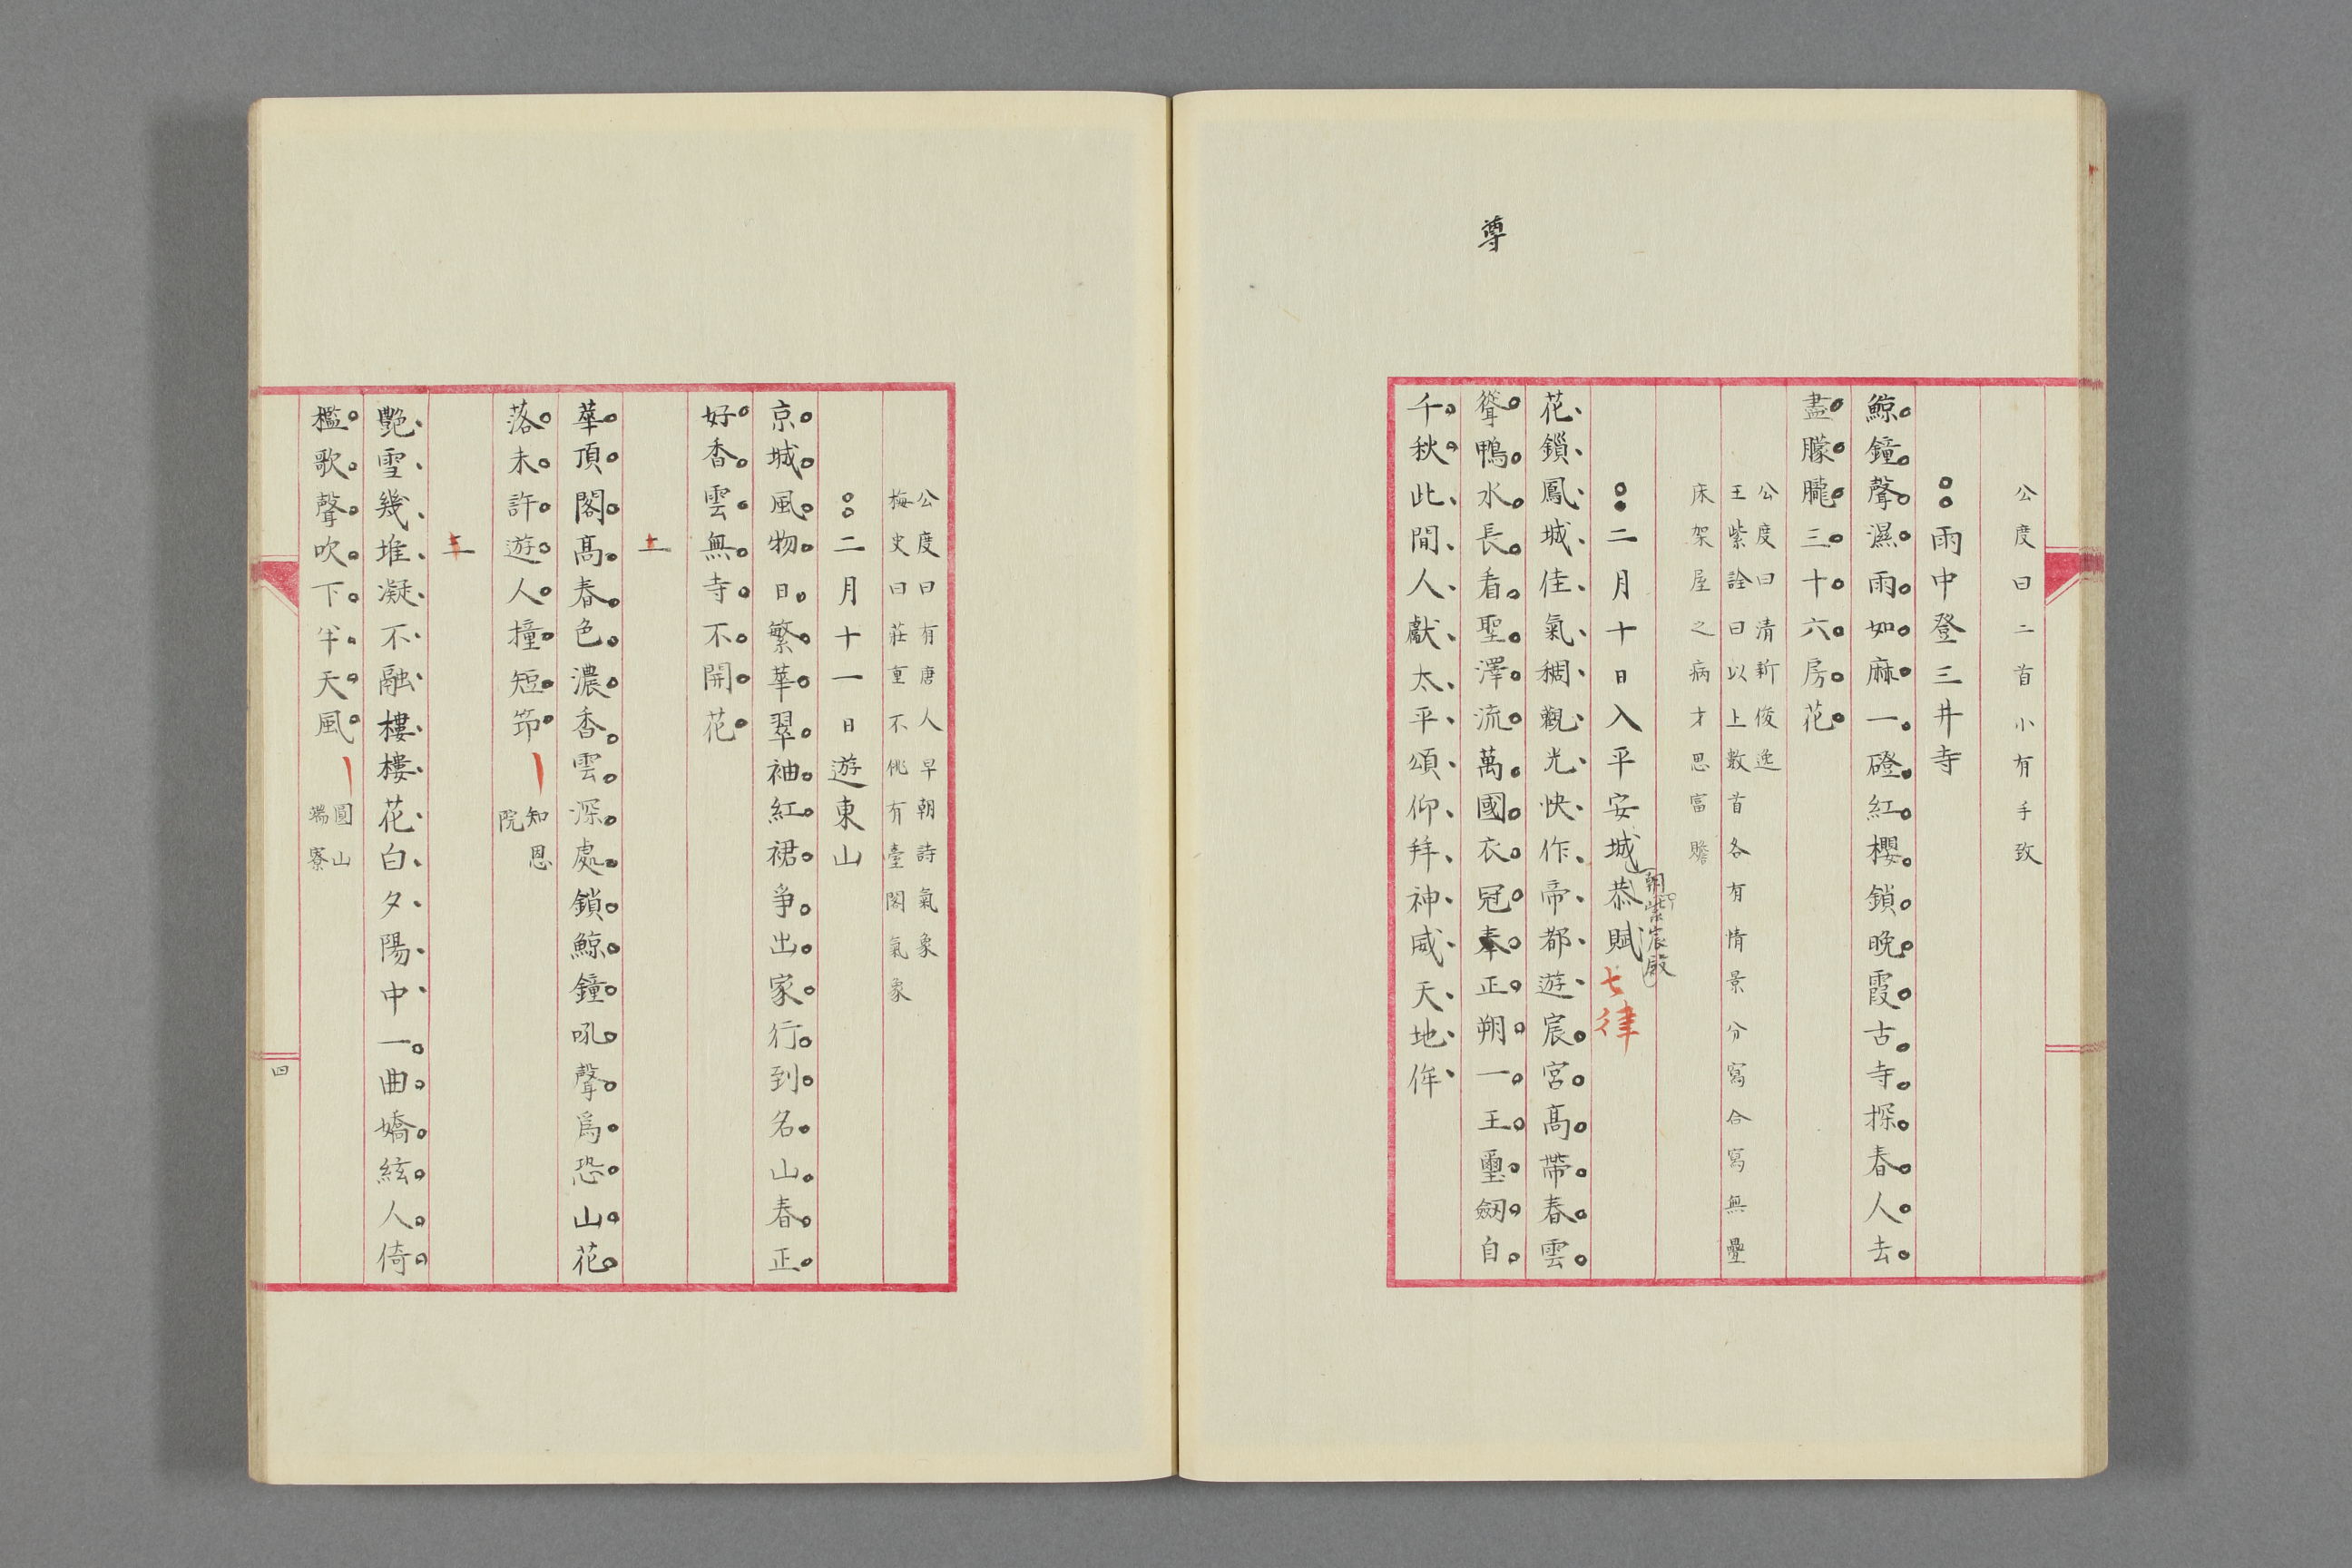 公度曰二首小有手致
雨中登三井寺
鯨鐘聲濕雨如麻一磴紅櫻鎖晚霞古寺探春人去
盡朦朧三十六房花
公度曰清新俊逸
王紫詮曰以上數首各有情景分寫合寫無疊
床架屋之病才思富贍
二月十日入平安城恭賦七律
朝紫宸殿
花鎖鳳城佳氣稠觀光快作帝都遊宸宮高帶春雲
尊
聳鴨水長看聖澤流萬國衣冠奉正朔一王璽劔自
千秋此間人獻太平頌仰拜神威天地侔
公度曰有唐人早朝詩氣象
梅史曰莊重不佻有臺閣氣象
二月十一日遊東山
京城風物日繁華翠袖紅裙爭出家行到名山春正
好香雲無寺不開花
二
華頂閣高春色濃香雲深處鎖鯨鐘吼聲爲恐山花
落未許遊人撞短筇
知恩
院
三
艷雪幾堆凝不融樓樓花白夕陽中一曲嬌絃人倚
檻歌聲吹下半天風
圓山
端寮
四